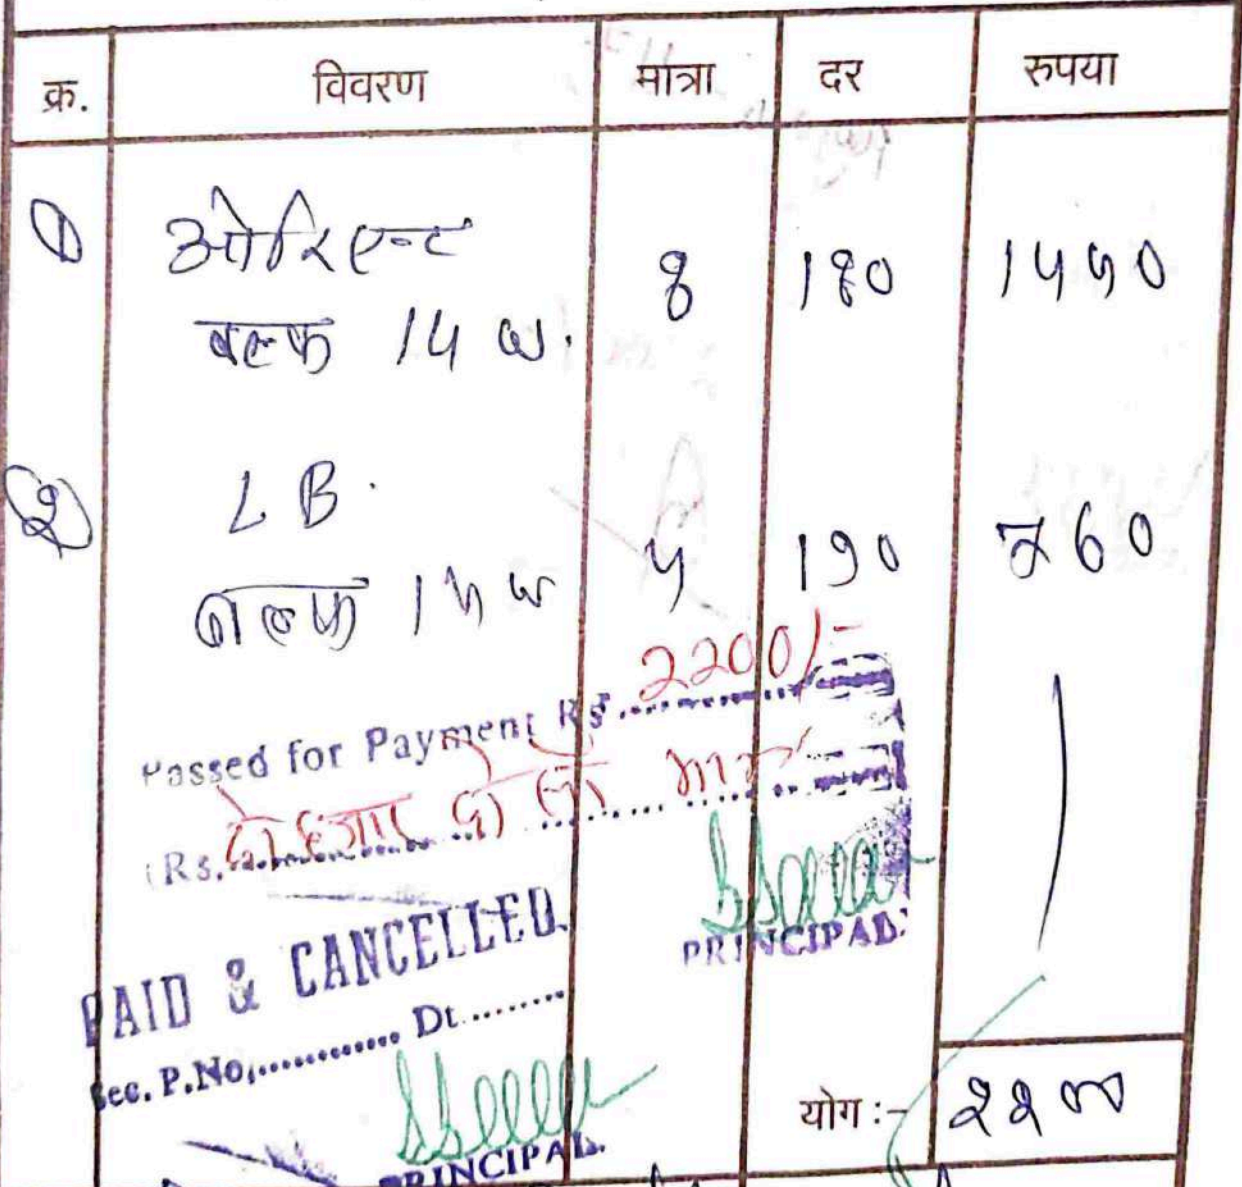 क्र. विवरण मात्रा दर रुपया
① ओरिएन्ट
बल्फ 14 w. 8 180 1440
② LB.
बल्फ 14 w 4 190 760
Passed for Payment Rs. 2200/-
(Rs. दो हजार दो सौ मात्र
PRINCIPAL
PAID & CANCELLED.
Sec. P.No. ............ Dt. ........
PRINCIPAL
योग :- २२००